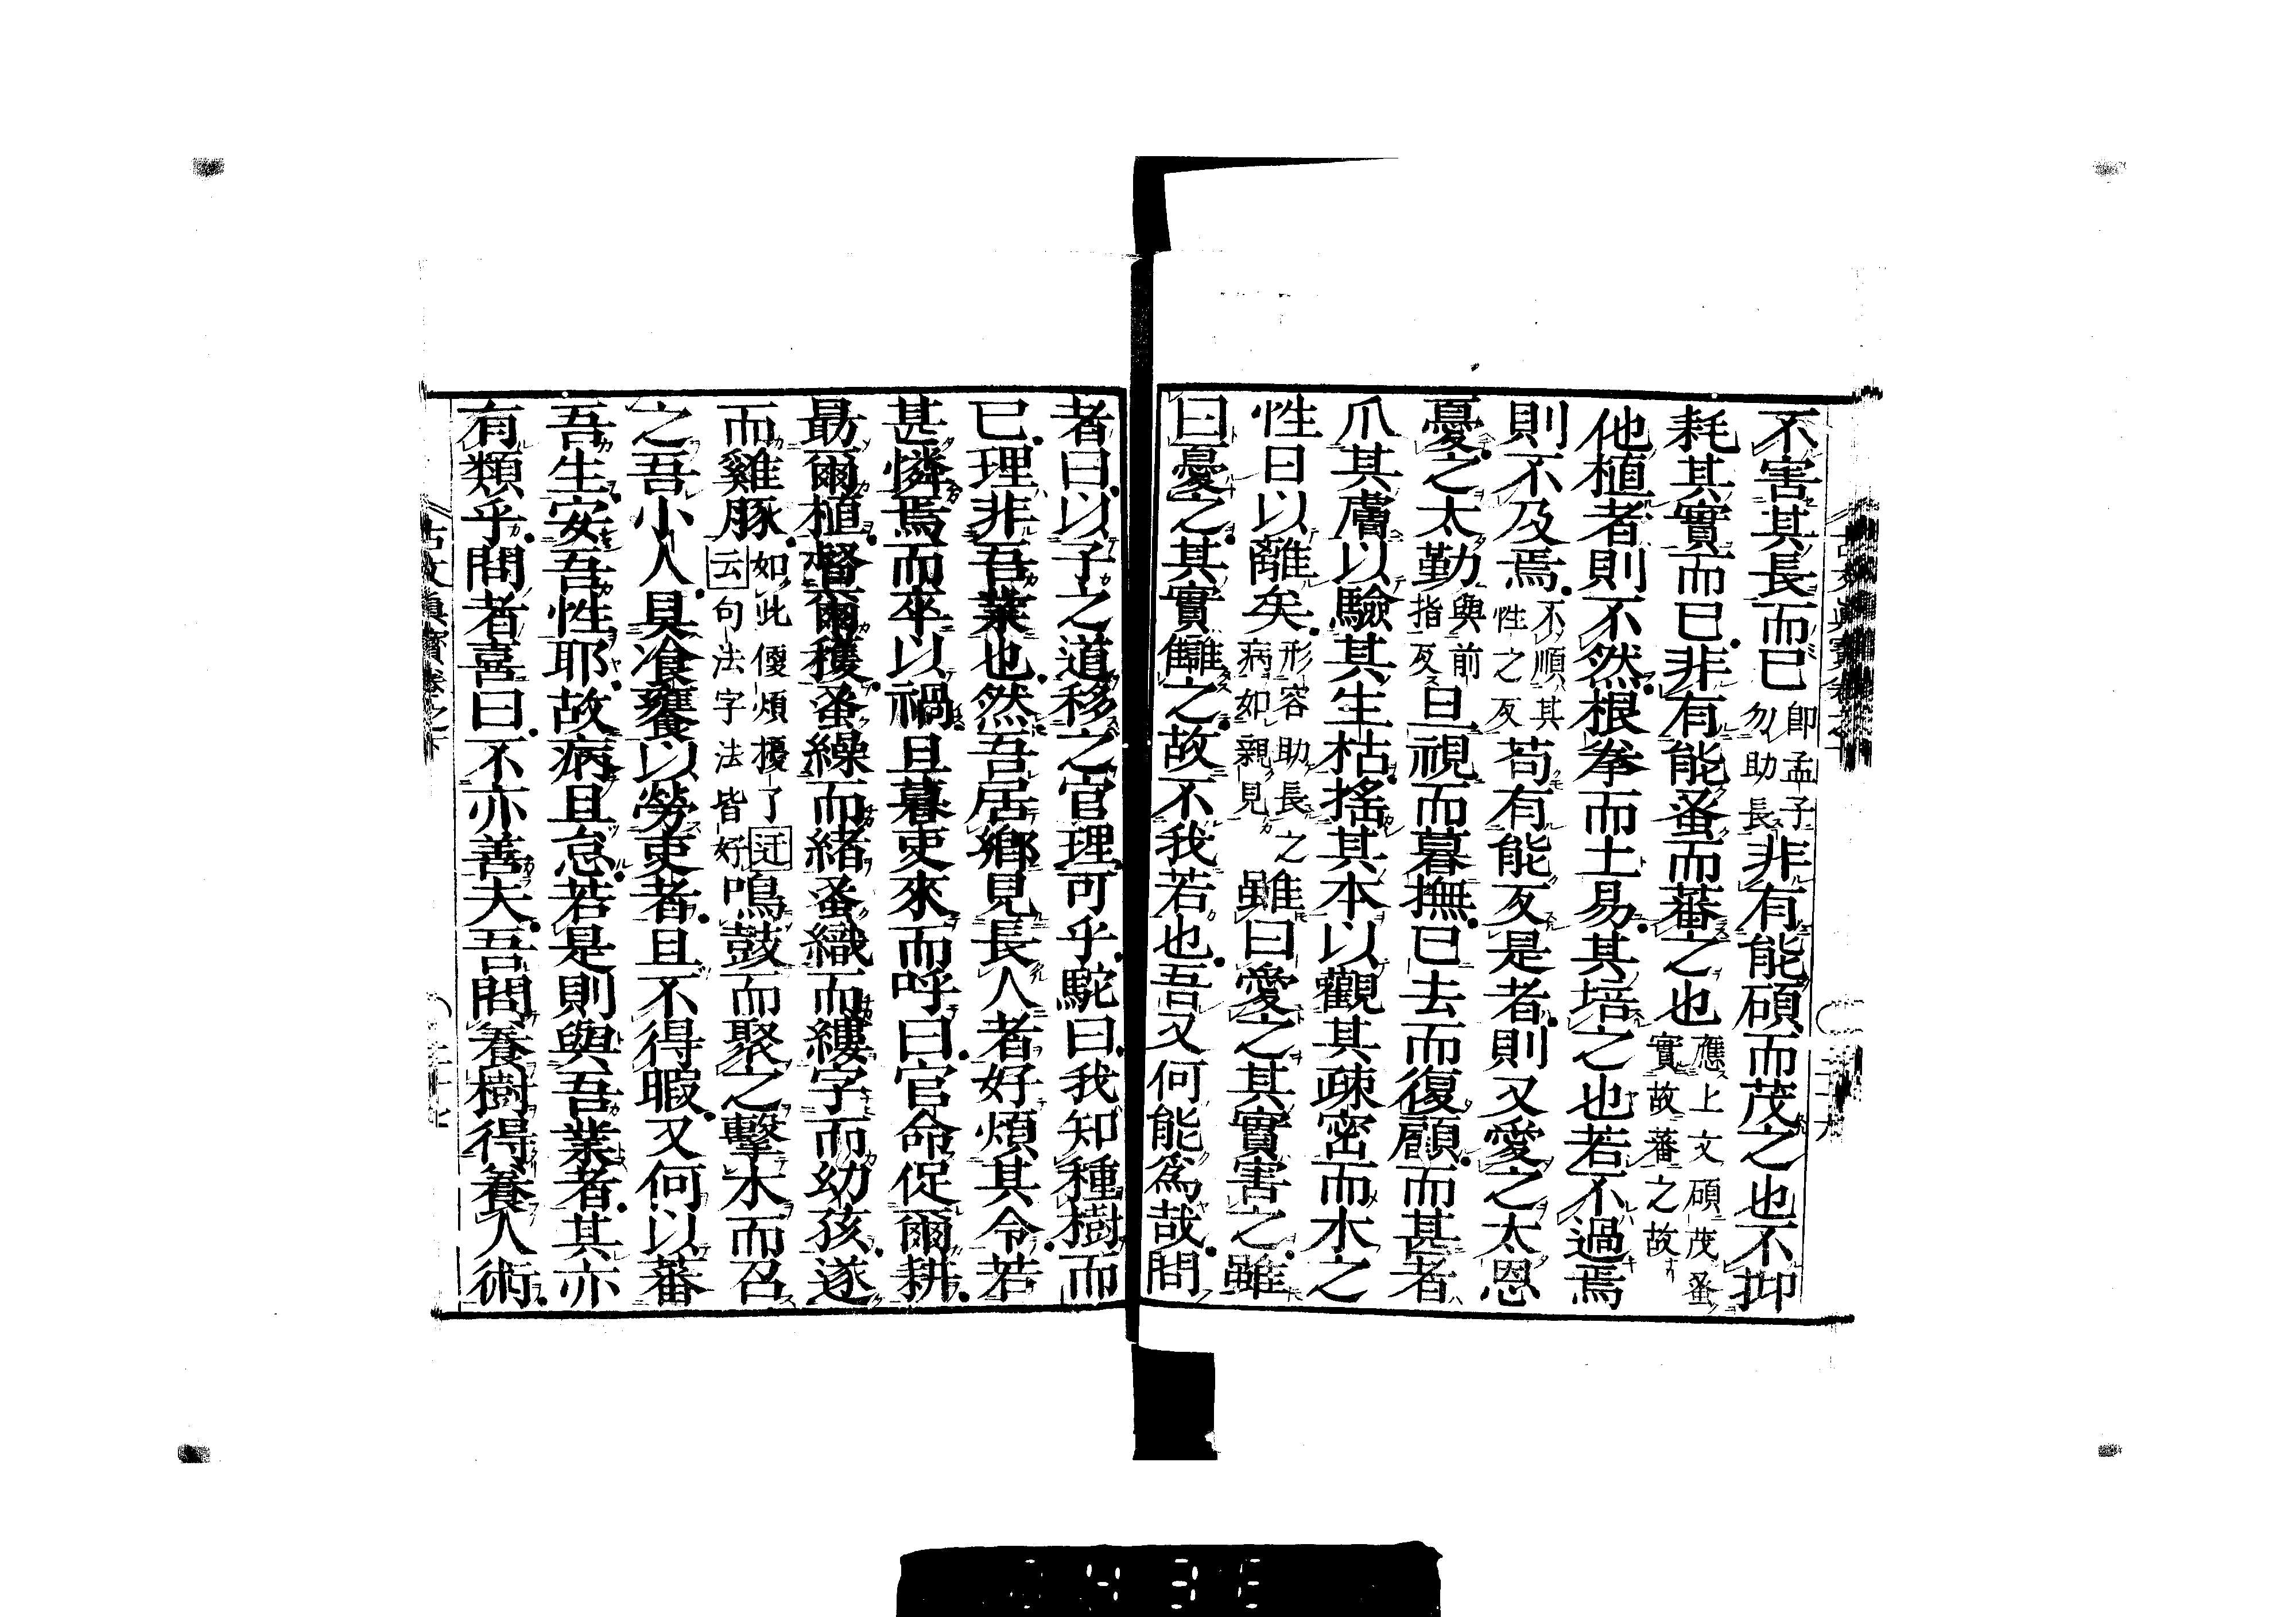 不害其長而已卽孟子勿助長非有能碩而茂之也不抑
耗其實而已非有能蚤而蕃之也應上文碩茂蚤實故蕃之故
他植者則不然根拳而土易其培之也若不過焉
則不及焉不順其性之反苟有能反是者則又愛之太恩
憂之太勤與前指反旦視而暮撫已去而復顧而甚者
爪其膚以驗其生枯搖其本以觀其疎密而木之
性日以離矣形容助長之病如親見雖曰愛之其實害之雖
曰憂之其實讎之故不我若也吾又何能爲哉問
者曰以子之道移之官理可乎駝曰我知種樹而
已理非吾業也然吾居鄉見長人者好煩其令若
甚憐焉而卒以禍旦暮吏來而呼曰官命促爾耕
勗爾植督爾穫蚤繰而緒蚤織而縷字而幼孩遂
而雞豚如此便煩擾了迂云句法字法皆好鳴鼓而聚之擊木而召
之吾小人具飡饔以勞吏者且不得暇又何以蕃
吾生安吾性耶故病且怠若是則與吾業者其亦
有類乎問者喜曰不亦善夫吾問養樹得養人術
古文眞寶卷之下